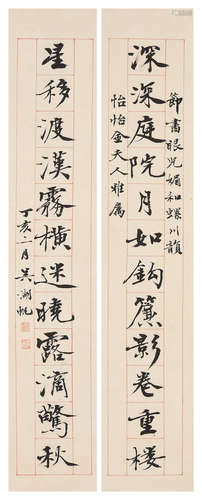 深深庭院月如鈎簾影卷重樓
節書眼兒媚和蝶川韻
怡怡金夫人雅屬
星移渡漢霧橫迷曉露滴驚秋
丁亥二月吳湖帆